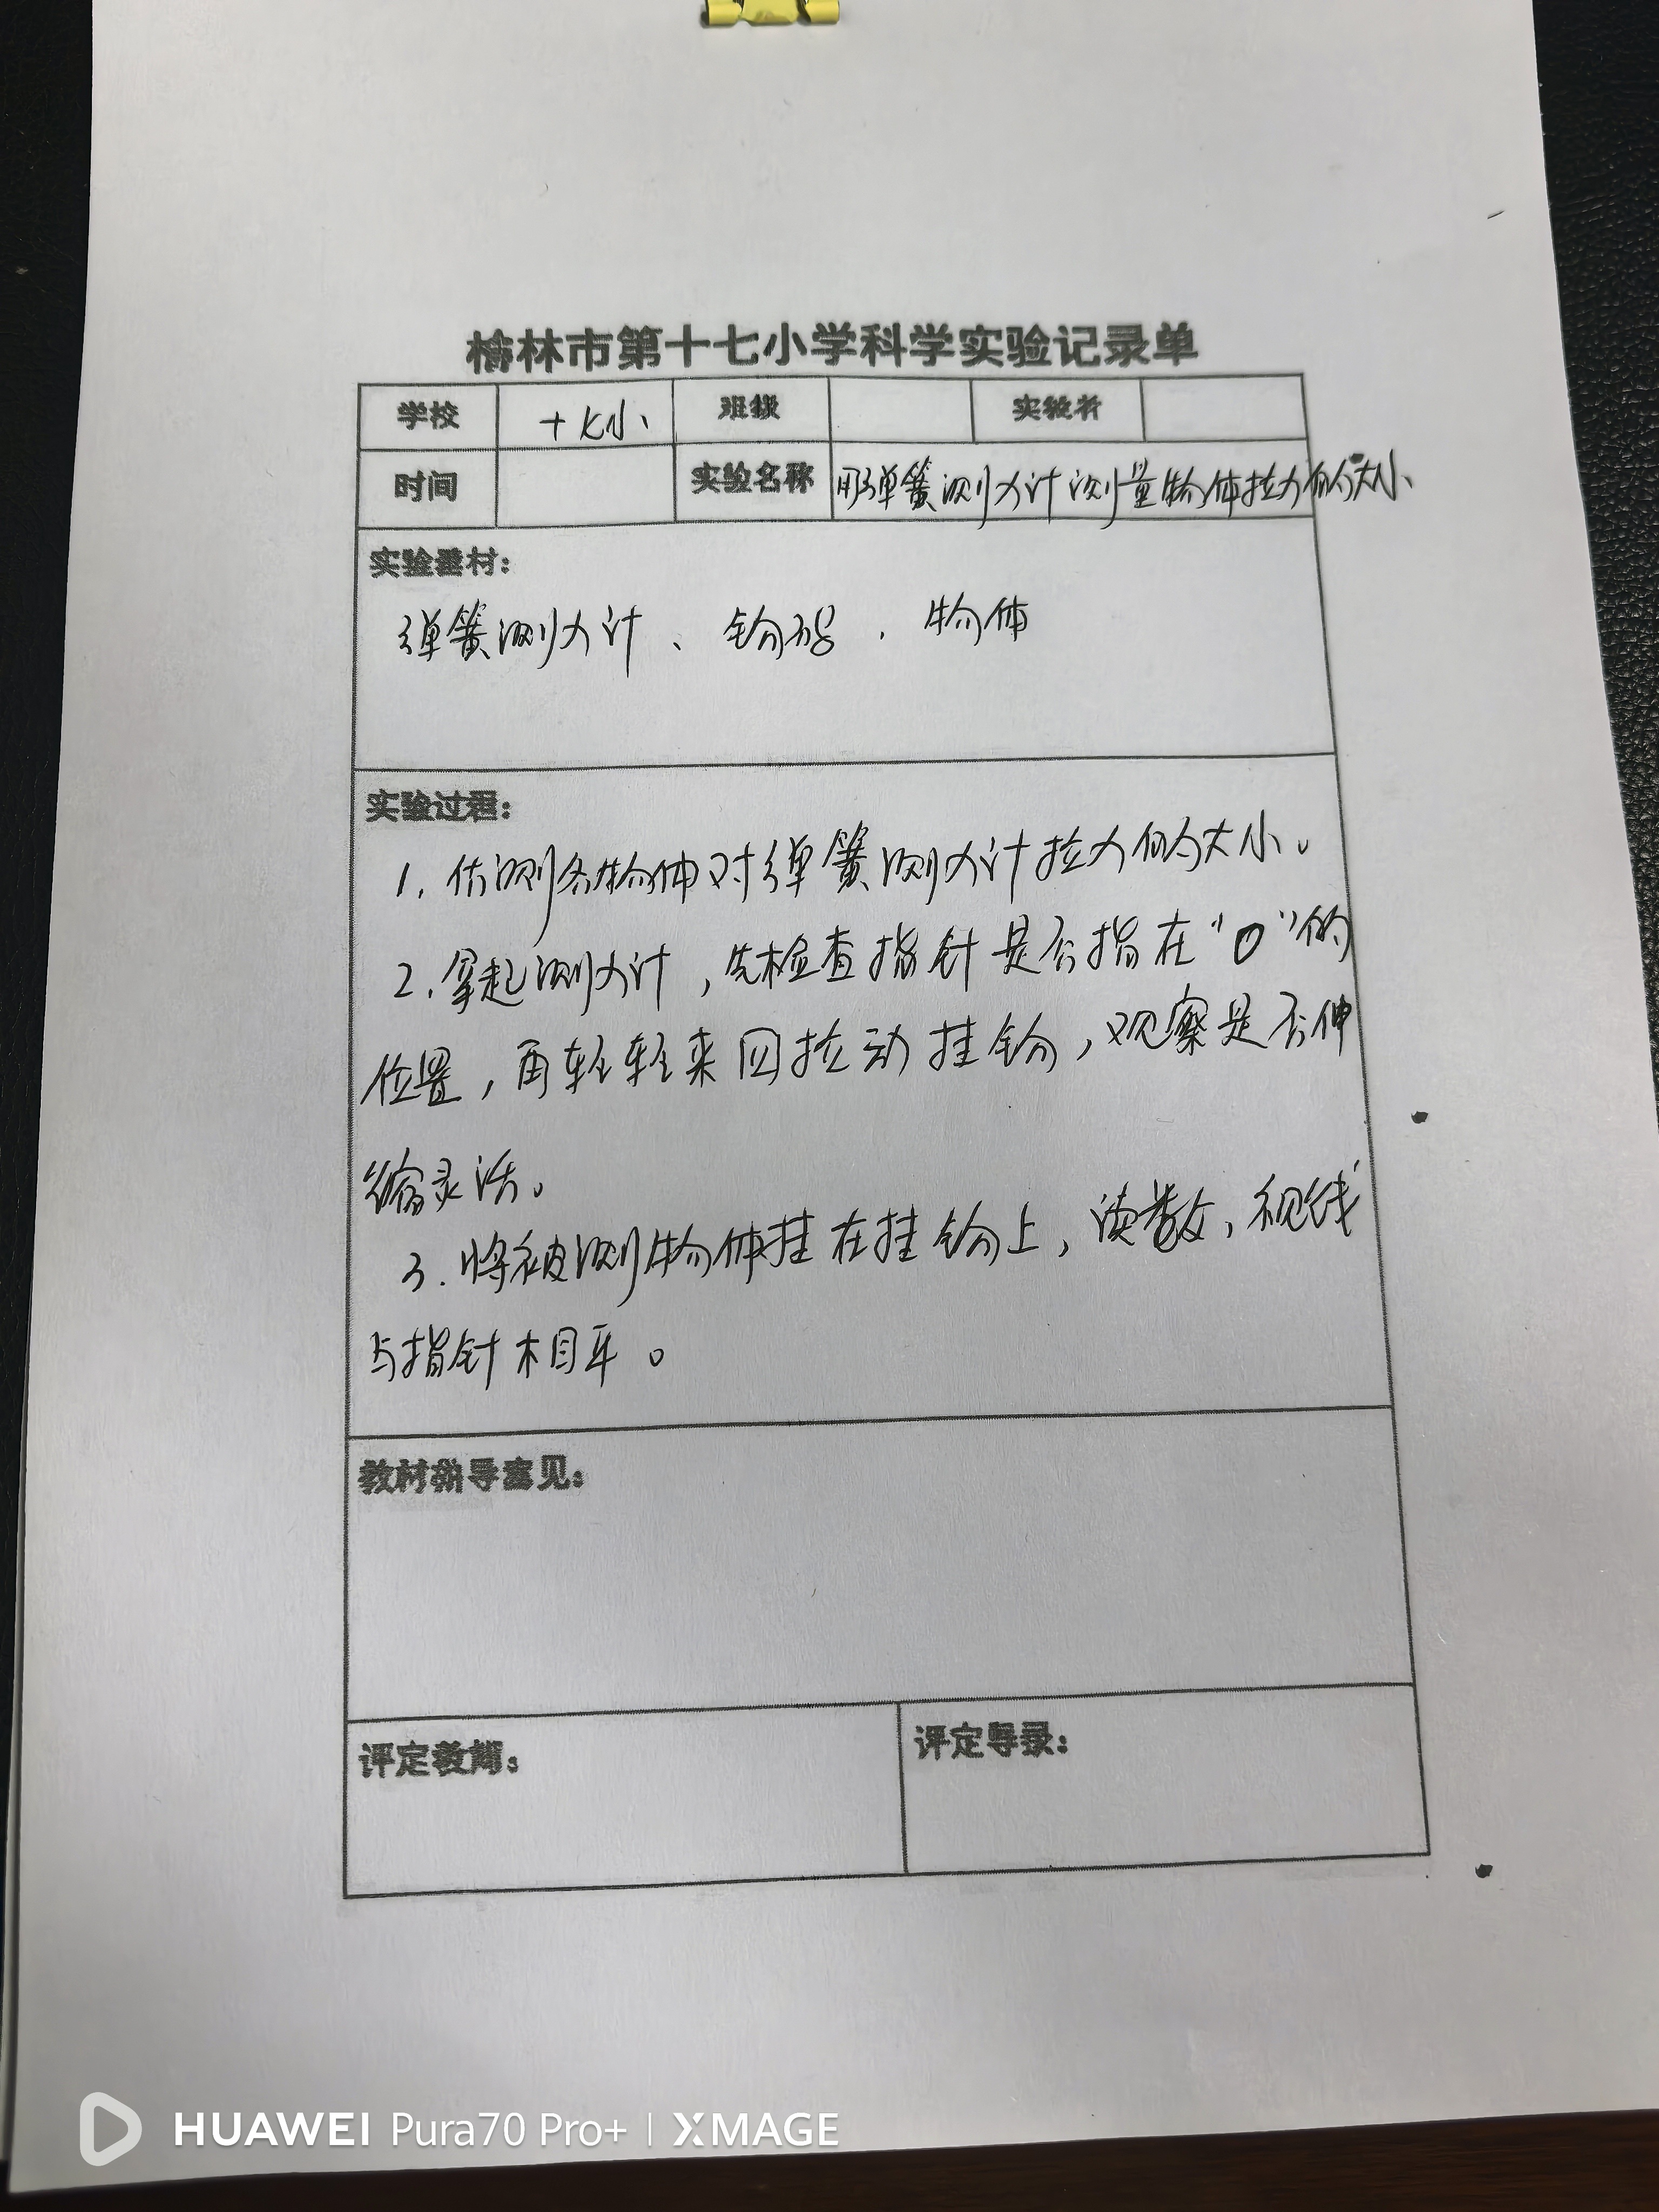 榆林市第十七小学科学实验记录单
学校 十七小 班级 实验者
时间 实验名称 用弹簧测力计测量物体拉力的大小
实验器材：
弹簧测力计、钩码、物体
实验过程：
1. 估测各物体对弹簧测力计拉力的大小。
2. 拿起测力计，先检查指针是否指在“0”的
位置，再轻轻来回拉动挂钩，观察是否伸
缩灵活。
3. 将被测物体挂在挂钩上，读数，视线
与指针相平。
教材指导意见：
评定教师： 评定等级：
HUAWEI Pura70 Pro+ | XMAGE